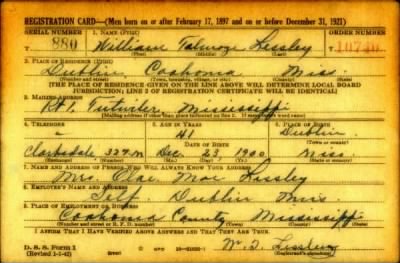 REGISTRATION CARD—(Men born on or after February 17, 1897 and on or before December 31, 1921)
SERIAL NUMBER 1. NAME (Print) ORDER NUMBER
880 William Talmage Lessley 10740
(First) (Middle) (Last)
2. PLACE OF RESIDENCE (Print)
Dublin, Coahoma Miss.
(Number and street) (Town, township, village, or city) (County) (State)
[THE PLACE OF RESIDENCE GIVEN ON THE LINE ABOVE WILL DETERMINE LOCAL BOARD
JURISDICTION; LINE 2 OF REGISTRATION CERTIFICATE WILL BE IDENTICAL]
3. MAILING ADDRESS
Rt 1 Tutwiler, Mississippi
[Mailing address if other than place indicated on line 2. If same insert word same]
4. TELEPHONE 5. AGE IN YEARS 6. PLACE OF BIRTH
41 Dublin
DATE OF BIRTH (Town or county)
Clarksdale, 327 Dec 23 1900 Miss
(Exchange) (Number) (Mo.) (Day) (Yr.) (State or country)
7. NAME AND ADDRESS OF PERSON WHO WILL ALWAYS KNOW YOUR ADDRESS
Mrs. Mae Lessley
8. EMPLOYER'S NAME AND ADDRESS
Self Dublin Miss
9. PLACE OF EMPLOYMENT OR BUSINESS
Coahoma County Mississippi
(Number and street or R. F. D. number) (Town) (County) (State)
I AFFIRM THAT I HAVE VERIFIED ABOVE ANSWERS AND THAT THEY ARE TRUE.
D. S. S. Form 1
(Revised 1-1-42) (over) GPO W. T. Lessley
(Registrant's signature)